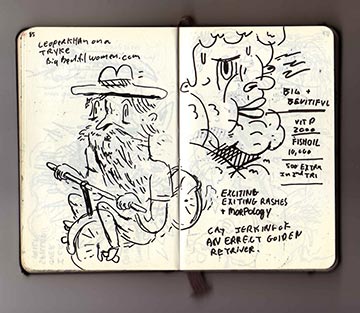 85
LEOPERKHAN on a
TRYKE
BigBeutifulwomen.com
BIG +
BEUTIFUL
VIT D
2000
FISHOIL
10,000
500 EXTRA
EXCITING
EXITING RASHES
+ MORPOLOGY
CAT JERKING OF
AN ERRECT GOLDEN
RETRIVER.